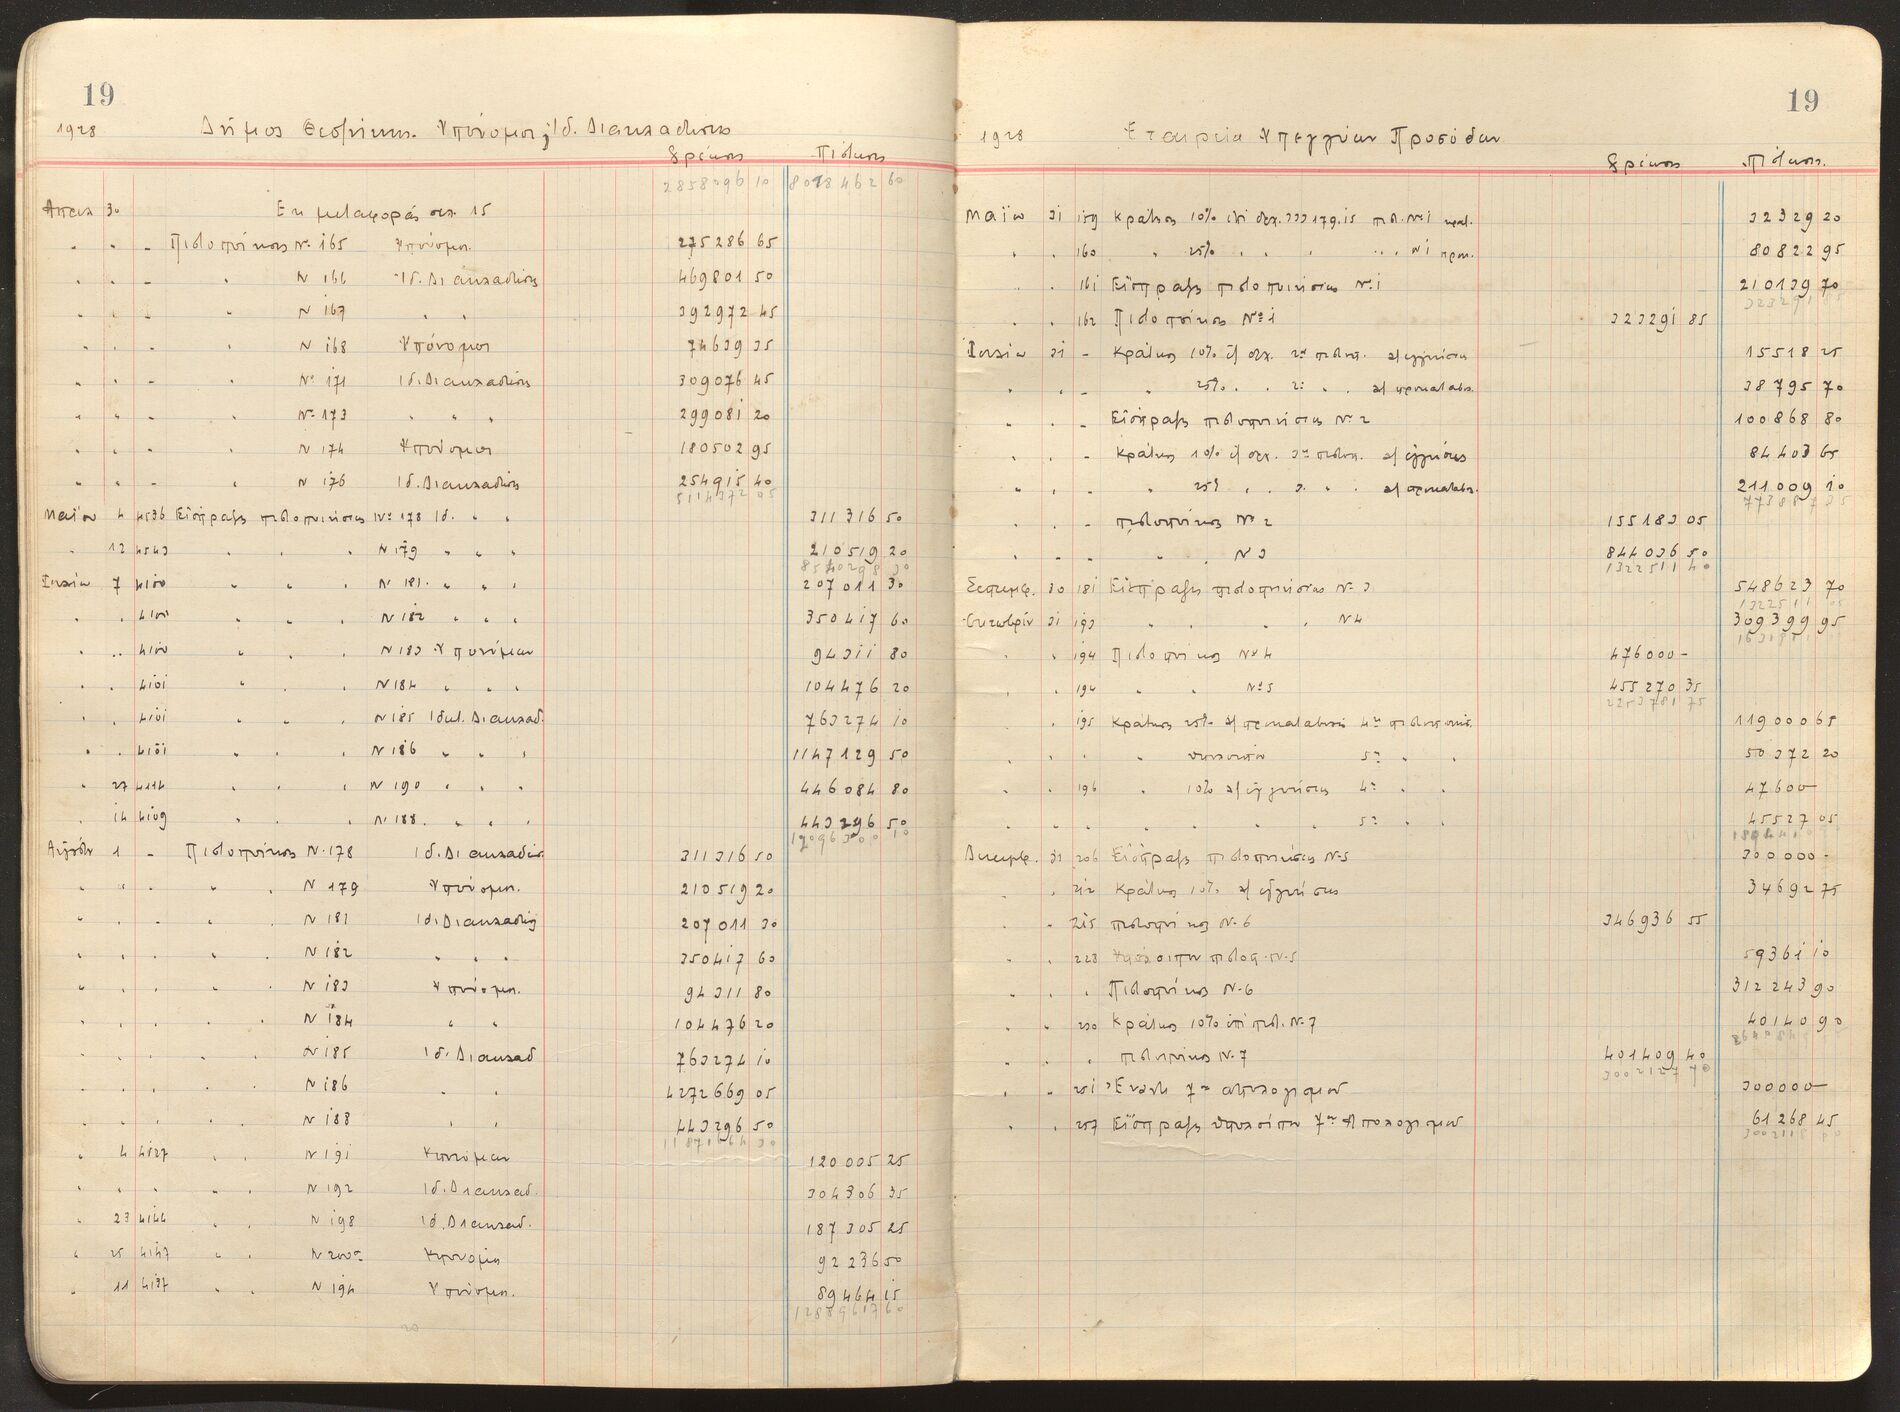 19
1928 Δήμος Θεσ/νίκης. Υπόνομοι & Ιδ. Διακλαδώσεις
Χρέωσις Πίστωσις
2858296 10 8018462 60
Απριλ 30 Εκ μεταφοράς σελ. 15
" " - Πιστοποίησις Νο 165 Υπόνομοι 275286 65
" " - " Ν 166 Ιδ. Διακλαδώσεις 469801 50
" " - " Ν 167 " " 392972 45
" " - " Ν 168 Υπόνομοι 74639 35
" " - " Νο 171 Ιδ. Διακλαδώσεις 309076 45
" " - " Νο 173 " " " 299081 20
" " - " Ν 174 Υπόνομοι 180502 95
" " - " Ν 176 Ιδ. Διακλαδώσεις 254915 40
5114372 05
Μαΐου 4 4536 Είσπραξις πιστοποιήσεως Νο 178 Ιδ. " " 311316 50
" 12 4543 " " " Ν 179 " " " 210519 20
8540298 30
Ιουλίου 7 4100 " " " Ν 181 " " " 207011 30
" " 4100 " " " Ν 182 " " " 350417 60
" " 4100 " " " Ν 183 Υπονόμων 94311 80
" " 4101 " " " Ν 184 " " " 104476 20
" " 4101 " " " Ν 185 Ιδιωτ. Διακλαδ. 763274 10
" " 4101 " " " Ν 186 " " " 1147129 50
" 27 4114 " " " Ν 190 " " " 446084 80
" 14 4109 " " " Ν 188 " " " 443296 50
12096300 10
Αυγούστ 1 - Πιστοποίησις Ν. 178 Ιδ. Διακλαδώσ. 311316 50
" " - " " Ν 179 Υπόνομοι. 210519 20
" " - " " Ν 181 Ιδ. Διακλαδώσεις 207011 30
" " " " " Ν 182 " " " 350417 60
" " " " " Ν 183 Υπόνομοι. 94311 80
" " " " " Ν 184 " " 104476 20
" " " " " Ν 185 Ιδ. Διακλαδ 763274 10
" " " " " Ν 186 " " 4272669 05
" " " " " Ν 188 " " 443296 50
11871664 30
" 4 4127 " " Ν 191 Υπονόμων 120005 25
" " " " " Ν 192 Ιδ. Διακλαδ. 304306 35
" 23 4144 " " Ν 198 Ιδ. Διακλαδ. 187305 25
" 25 4147 " " Ν 200 Υπονόμοι 92236 50
" 11 4137 " " Ν 194 Υπόνομοι. 89464 15
12889617 60
20
19
1928 Εταιρεία Υπεγγύων Προσόδων
Χρέωσις Πίστωσις.
Μαΐου 31 159 Κράτησις 10% επί δρχ. 333179.15 πιστ. Νο 1 32329 20
" " 160 " 25% " " " " Ν 1 προκ. 80822 95
" " 161 Είσπραξις πιστοποιήσεως Νο 1 210139 70
323291 85
" " 162 Πιστοποίησις Νο 1 323291 85
Ιουλίου 31 - Κράτησις 10% εξ δρχ. 2ας πιστοπ. α/ εγγυήσεως 15518 25
" " - " 25% " " 2ας " " α/ προκαταβ. 38795 70
" " - Είσπραξις πιστοποιήσεως Νο 2 100868 80
" " - Κράτησις 10% εξ δρχ. 3ης πιστοπ. α/ εγγυήσεως 84403 65
" " - " 25% " " 3. " " α/ προκαταβ. 211009 10
773887 35
" " - πιστοποίησις Νο 2 155183 05
" " - " " Ν 3 844036 50
1322511 40
Σεπτεμβ. 30 181 Είσπραξις πιστοποιήσεως Ν. 3 548623 70
1322511 05
Οκτωβρίου 31 193 " " " " Ν 4 309399 95
" " 194 Πιστοποίησις Νο 4 476000 -
" " 194 " " Νο 5 455270 35
2253781 75
" " 195 Κράτησις 25% α/ προκαταβολών 4ης πιστοποιήσ. 119000 65
" " " " υπολοίπου 5ης " " 50372 20
" " 196 " 10% α/ εγγυήσεως 4ης " " 47600 -
" " " " " " " 5ης " " 45527 05
Δεκεμβ. 31 206 Είσπραξις πιστοποιήσεως Ν. 5 300000 -
" 212 Κράτησις 10% α/ εγγυήσεως 34692 75
" " 215 πιστοποίησις Ν. 6 346936 55
" " 223 Υπόλοιπον πιστοπ. Ν. 5 59361 10
" " " Πιστοποίησις Ν. 6 312243 90
" " 230 Κράτησις 10% επί πιστ. Ν. 7 40140 90
" " " πιστοποίησις Ν. 7 401409 40
3002127 70
" " 251 Έναντι 7ου απολογισμού 300000 -
" " 257 Είσπραξις υπολοίπου 7ου Απολογισμού 61268 45